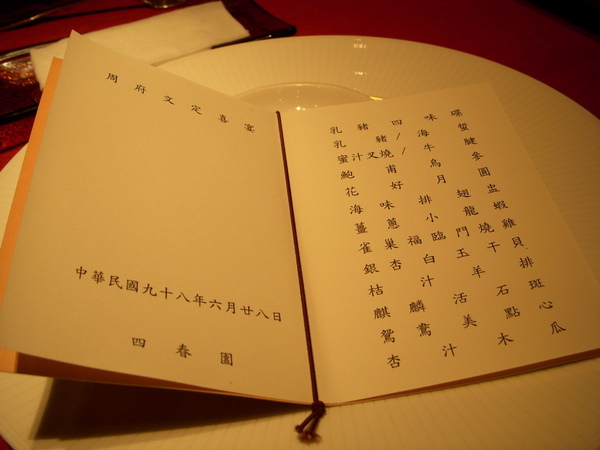 周府文定喜宴
中華民國九十八年六月廿八日
四春園
乳豬四味碟
乳豬/海蜇
蜜汁叉燒/牛腱
鮑甫烏參
花好月圓
海味排翅盅
薑蔥小龍蝦
雀巢福臨門燒雞
銀杏白玉干貝
桔汁羊排
麒麟活石斑
鴛鴦美點心
杏汁木瓜